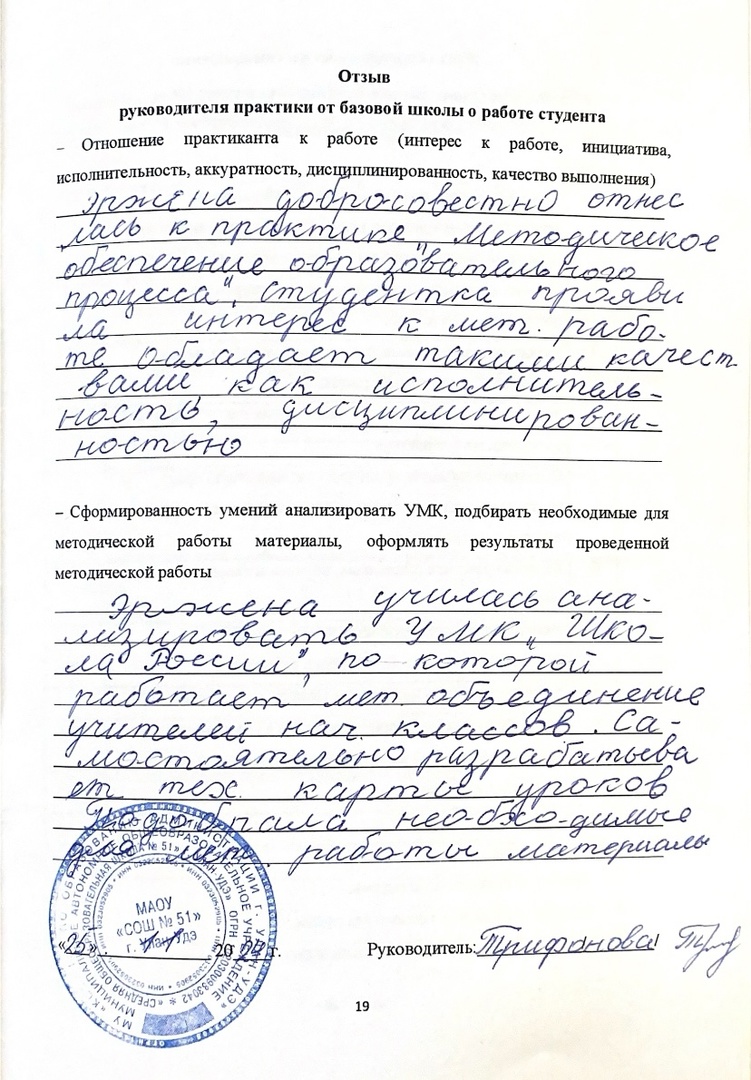 Отзыв
руководителя практики от базовой школы о работе студента
– Отношение практиканта к работе (интерес к работе, инициатива,
исполнительность, аккуратность, дисциплинированность, качество выполнения)
Эржена добросовестно отнес
лась к практике „Методическое
обеспечение образовательного
процесса", студентка прояви
ла интерес к мет. рабо-
те обладает такими качест
вами, как исполнитель-
ность, дисциплинирован-
ностью
– Сформированность умений анализировать УМК, подбирать необходимые для
методической работы материалы, оформлять результаты проведенной
методической работы
Эржена училась ана-
лизировать УМК „Шко-
ла России", по которой
работает мет. объединение
учителей нач. классов. Са-
мостоятельно разрабатыва
ет тех. карты уроков
необходимые
для мет. работы материалы
МАОУ
«СОШ № 51»
г. Улан-Удэ
20 г.
Руководитель: Трифонова
19